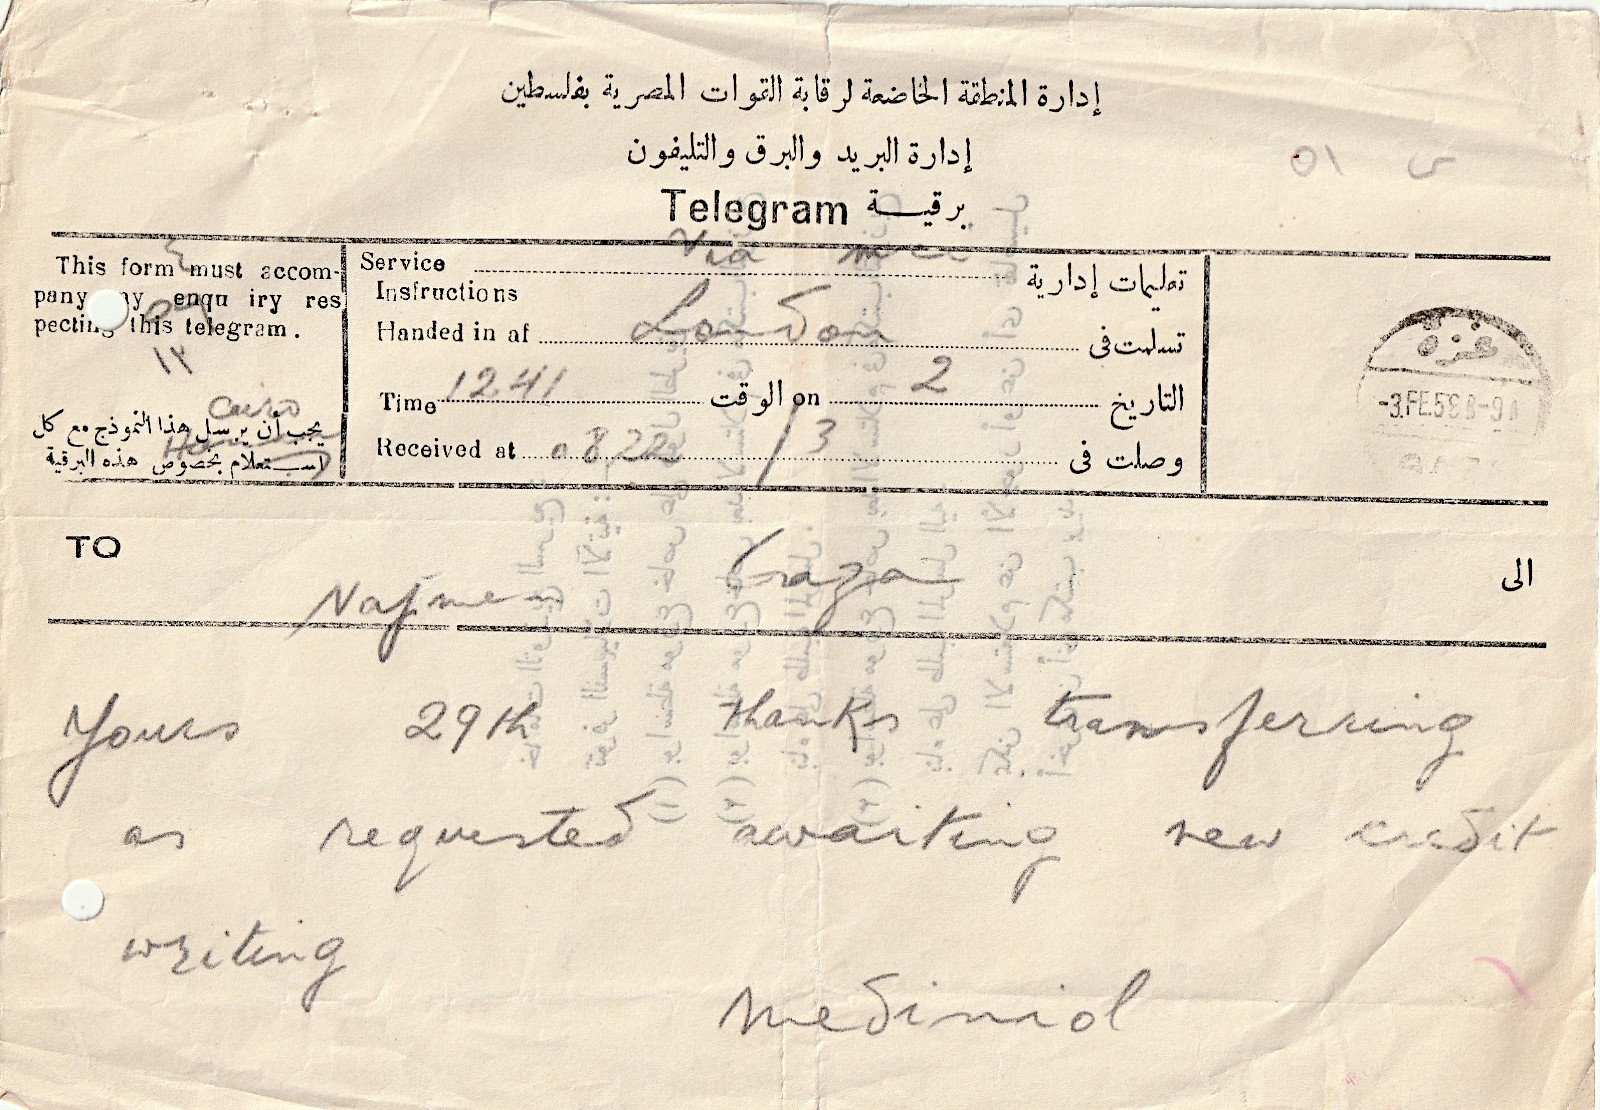 إدارة المنطقة الخاضعة لرقابة القوات المصرية بفلسطين
إدارة البريد والبرق والتليفون
س ٥١
Telegram برقيـــة
This form must accom-
pany any enqu iry res
pecting this telegram.
١٢
Cairo
يجب أن يرسل هذا النموذج مع كل
استعلام بخصوص هذه البرقية
Via mci
Service Instructions تعليمات إدارية
Handed in at London تسلمت فى
Time 1241 الوقت on 2 التاريخ
Received at 0822 /3 وصلت فى
غزة
-3.FE.58 8-9A
GAZA
TO الى
Najmeh Gaza
Yours 29th thanks transferring
as requested awaiting new credit
writing
Mediniol